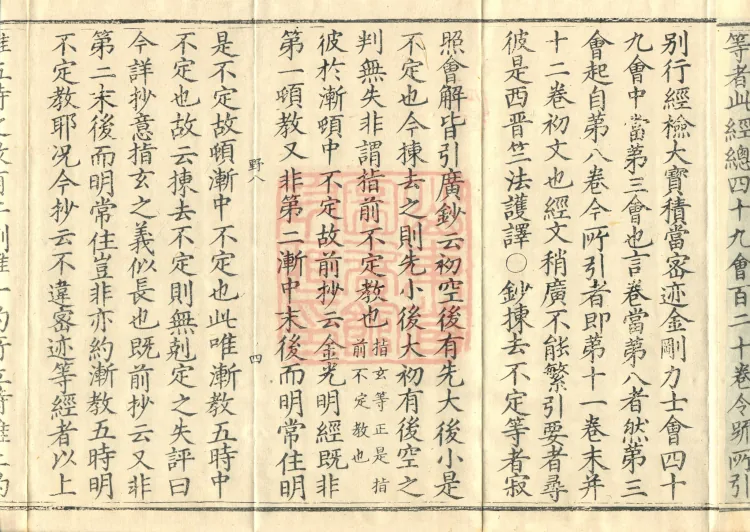 等者此經總四十九會百二十卷今號所引
別行經檢大寶積當密迹金剛力士會四十
九會中當第三會也言卷當第八者然第三
會起自第八卷今所引者即第十一卷末并
十二卷初文也經文稍廣不能繁引要者尋
彼是西晋竺法護譯〇鈔揀去不定等者寂
照會解皆引廣鈔云初空後有先大後小是
不定也今揀去之則先小後大初有後空之
判無失非謂指前不定教也指玄等正是指前不定教也
彼於漸頓中不定故前抄云金光明經既非
第一頓教又非第二漸中末後而明常住明
野八
四
是不定故頓漸中不定也此唯漸教五時中
不定也故云揀去不定則無剋定之失評曰
今詳抄意指玄之義似長也既前抄云又非
第二末後而明常住豈非亦約漸教五時明
不定教耶况今抄云不違密迹等經者以上